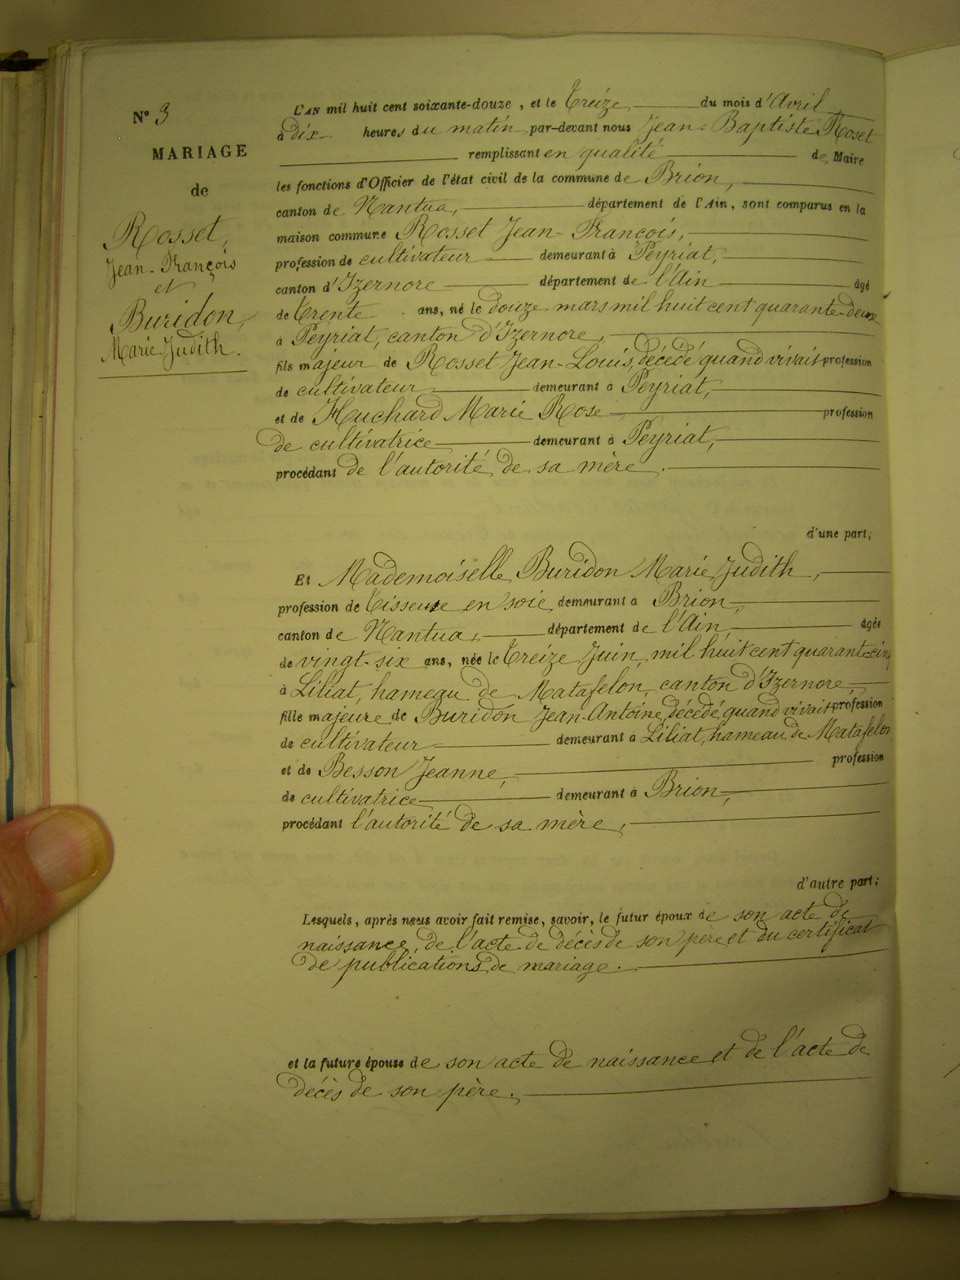 N° 3
MARIAGE
de
Rosset,
Jean-François
et
Buridon,
Marie Judith.
L'AN mil huit cent soixante-douze, et le Treize du mois d'Avril
à dix heures du matin par-devant nous Jean-Baptiste Rosset
remplissant en qualité de Maire
les fonctions d'Officier de l'état civil de la commune de Brion,
canton de Nantua, département de l'Ain, sont comparus en la
maison commune Rosset Jean-François,
profession de cultivateur demeurant à Peyriat,
canton d'Izernore département de l'Ain âgé
de Trente ans, né le douze mars mil huit cent quarante-deux
à Peyriat, canton d'Izernore,
fils majeur de Rosset Jean-Louis, décédé quand vivait profession
de cultivateur demeurant à Peyriat,
et de Huchard Marie Rose profession
de cultivatrice demeurant à Peyriat,
procédant de l'autorité de sa mère.
d'une part;
Et Mademoiselle Buridon Marie Judith,
profession de Tisseuse en soie demeurant à Brion,
canton de Nantua, département de l'Ain âgée
de vingt-six ans, née le Treize Juin mil huit cent quarante-cinq
à Liliat, hameau de Matafelon, canton d'Izernore,
fille majeure de Buridon Jean-Antoine, décédé, quand vivait profession
de cultivateur demeurant à Liliat, hameau de Matafelon
et de Besson Jeanne, profession
de cultivatrice demeurant à Brion,
procédant l'autorité de sa mère,
d'autre part;
Lesquels, après nous avoir fait remise, savoir, le futur époux de son acte de
naissance, de l'acte de décès de son père et du certificat
de publications de mariage.
et la future épouse de son acte de naissance et de l'acte de
décès de son père.